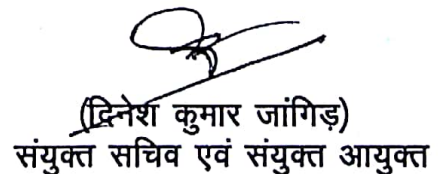 (दिनेश कुमार जांगिड़)
संयुक्त सचिव एवं संयुक्त आयुक्त